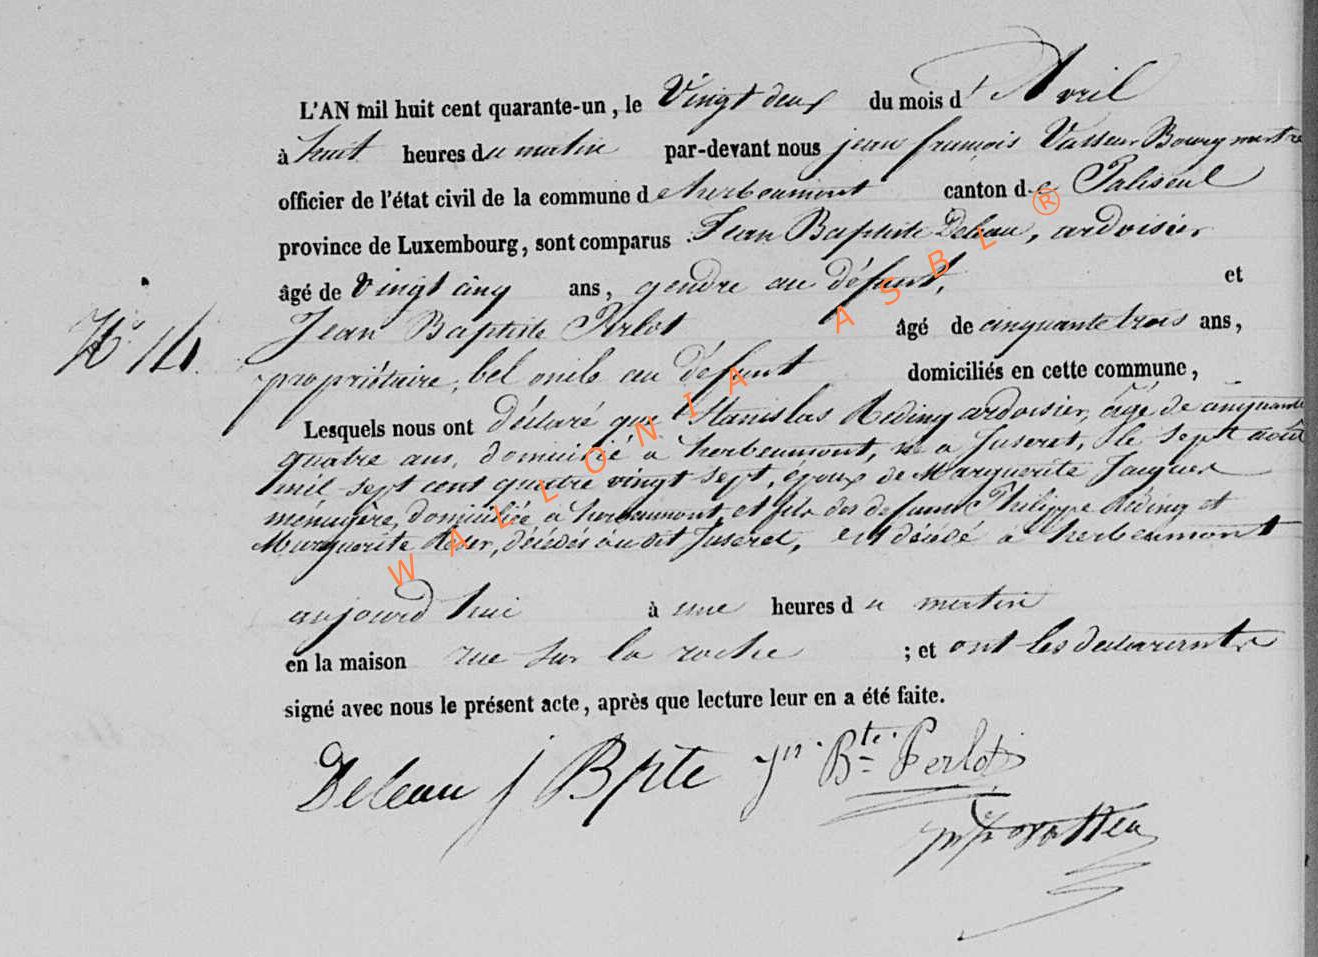 L'AN mil huit cent quarante-un, le Vingt deux du mois d' Avril
à huit heures du matin par-devant nous jean françois Vasseur Bourgmestre
officier de l'état civil de la commune de herbeumont canton de Paliseul
province de Luxembourg, sont comparus Jean Baptiste Deleau, ardoisier
âgé de Vingt cinq ans, gendre au défunt, et
N° 14. Jean Baptiste Perlot âgé de cinquante trois ans,
propriétaire, bel oncle au défunt domiciliés en cette commune,
Lesquels nous ont déclaré que Stanislas Reding ardoisier, âgé de cinquante
quatre ans, domicilié à herbeumont, né a Juseret, le sept août
mil sept cent quatre vingt sept, époux de Marguerite Jacques
ménagère, domiciliée à herbeumont, et fils des defunts Philippe Reding et
Marguerite, décédés audit Juseret, est décédé à herbeumont
aujourd hui à une heures du matin
en la maison rue sur la roche ; et ont les déclarants
signé avec nous le présent acte, après que lecture leur en a été faite.
Deleau j Bpte jn. Bte. Perlot
WALLONIA ASBL ®